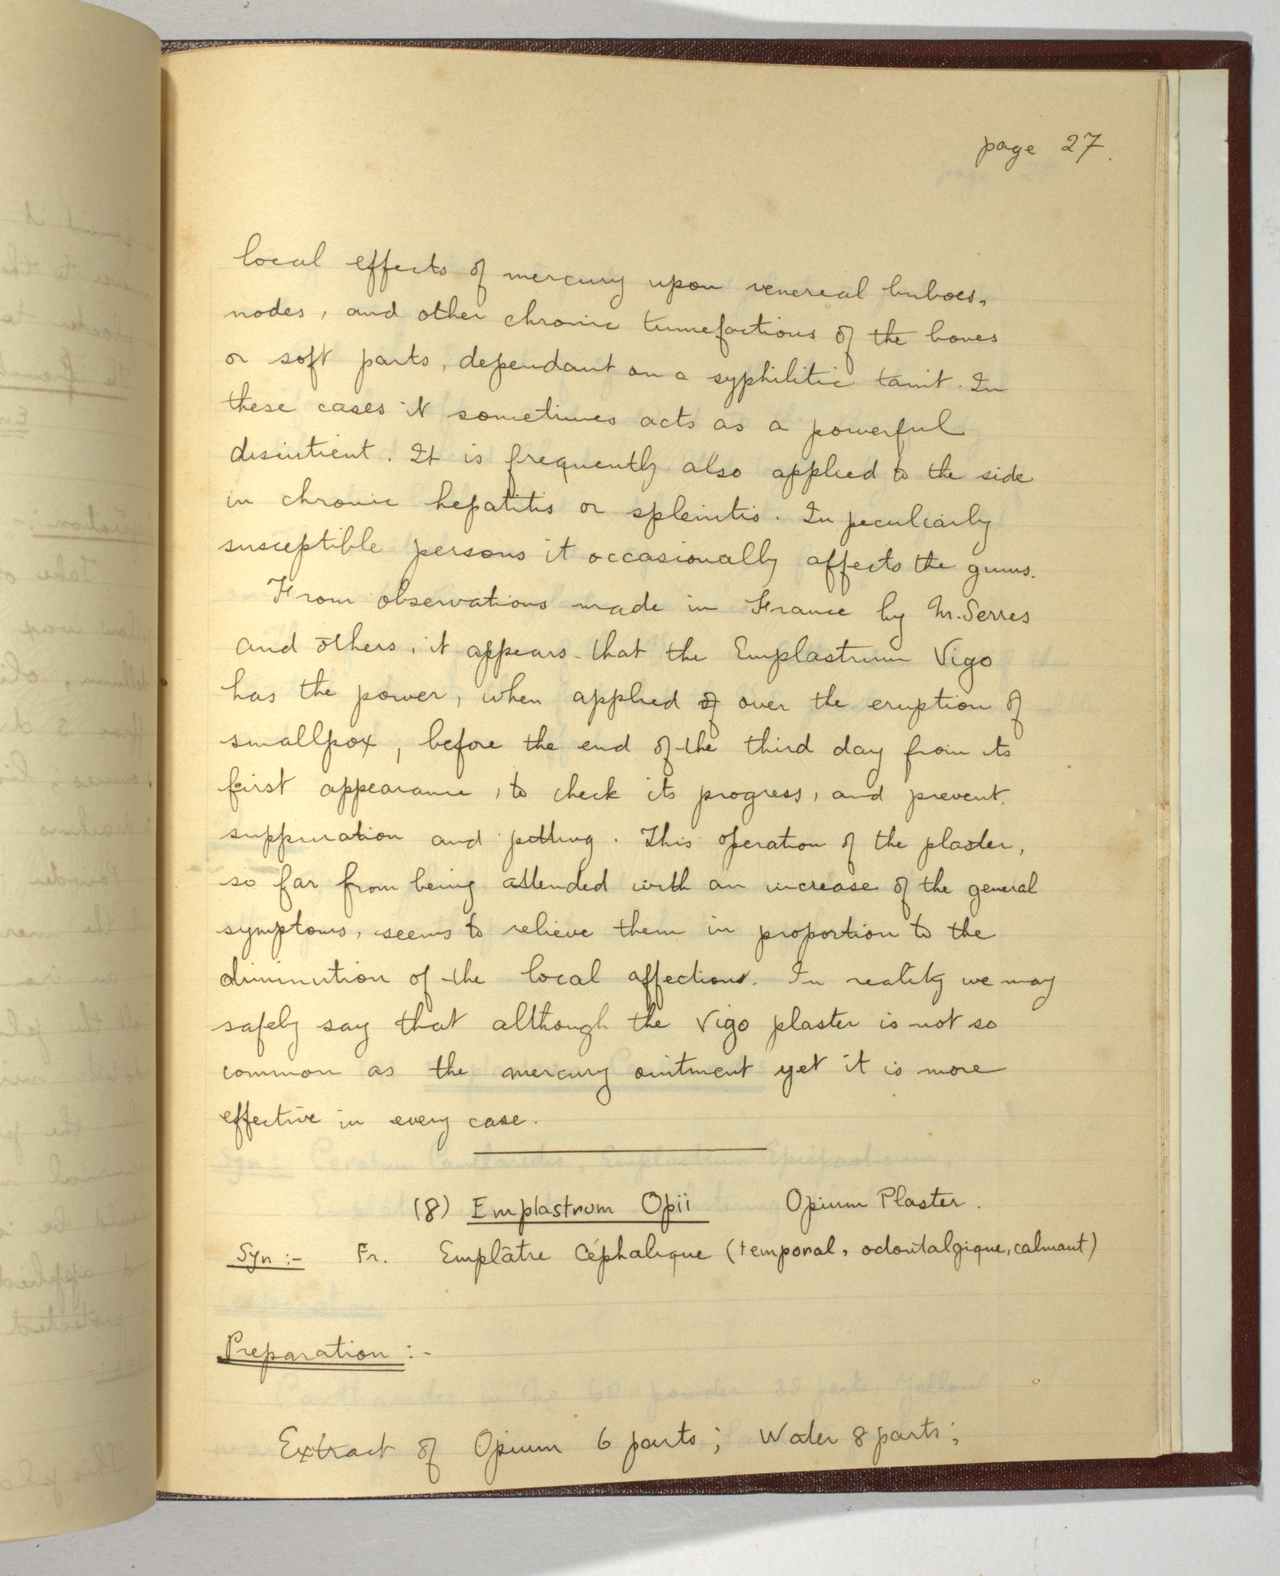 page 27.
local effects of mercury upon venereal buboes,
nodes, and other chronic tumefactions of the bones
or soft parts, dependant on a syphilitic taint. In
these cases it sometimes acts as a powerful
discutient. It is frequently also applied to the side
in chronic hepatitis or splenitis. In peculiarly
susceptible persons it occasionally affects the gums.
From observations made in France by M. Serres
and others, it appears that the Emplastrum Vigo
has the power, when applied of over the eruption of
smallpox, before the end of the third day from its
first appearance, to check its progress, and prevent
suppuration and pitting. This operation of the plaster,
so far from being attended with an increase of the general
symptoms, seems to relieve them in proportion to the
diminution of the local affections. In reality we may
safely say that although the Vigo plaster is not so
common as the mercury ointment yet it is more
effective in every case.
(8) Emplastrum Opii Opium Plaster.
Syn :- Fr. Emplâtre Céphalique (temporal, odontalgique, calmant)
Preparation :-
Extract of Opium 6 parts; Water 8 parts;